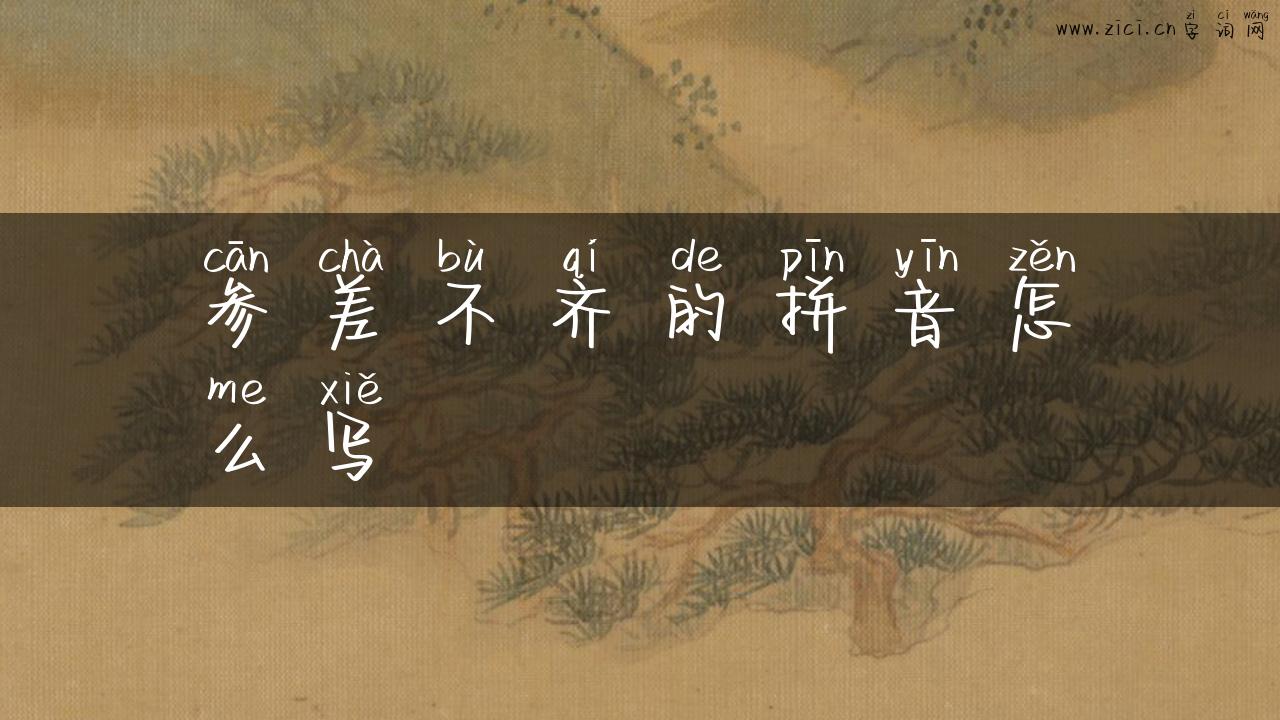 zì cí wǎng
www.zici.cn 字词网
cān chà bù qí de pīn yīn zěn
参差不齐的拼音怎
me xiě
么写